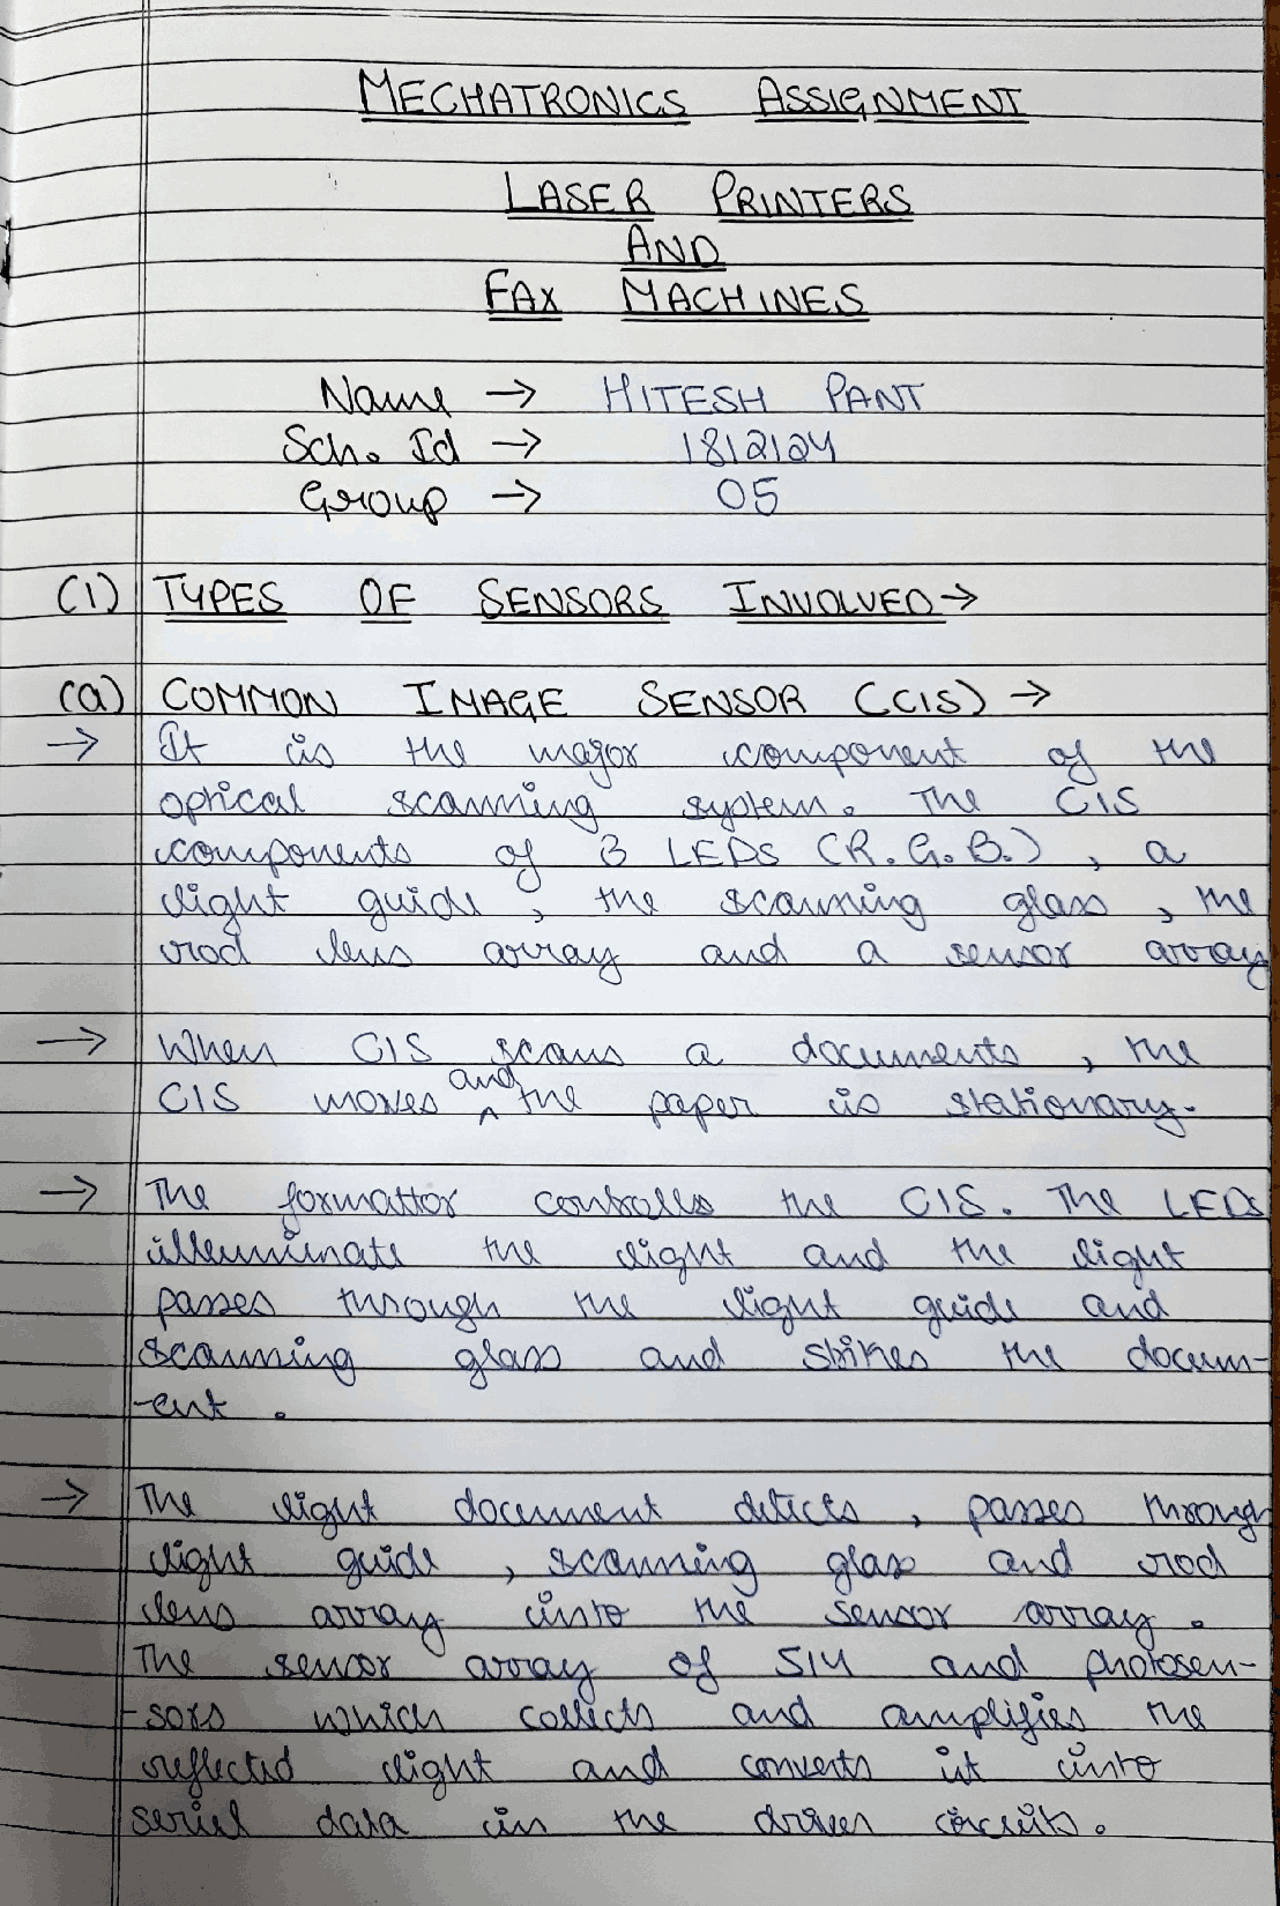 MECHATRONICS ASSIGNMENT
LASER PRINTERS
AND
FAX MACHINES
Name → HITESH PANT
Sch. Id → 1812124
Group → 05
(1) TYPES OF SENSORS INVOLVED →
(a) COMMON IMAGE SENSOR (CIS) →
→ It is the major component of the
optical scanning system. The CIS
components of 3 LEDs (R.G.B.) , a
light guide , the scanning glass , the
rod lens array and a sensor array
→ When CIS scans a documents , the
CIS moves and the paper is stationary.
→ The formattor controlls the CIS. The LEDs
illeuminate the light and the light
passes through the light guide and
scanning glass and strikes the docum-
-ent .
→ The light document detects , passes through
light guide , scanning glass and rod
lens array into the sensor array .
The sensor array of 514 and photosen-
-sors which collects and amplifies the
reflected light and converts it into
seriel data in the driver circuits.